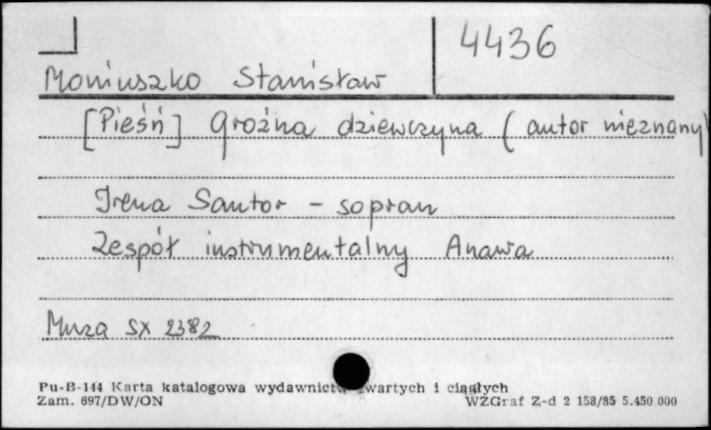 4436
Moniuszko Stanisław
[Pieśń] Groźna dziewczyna (autor nieznany)
Irena Santor - sopran
Zespół instrumentalny Anawa
Muza SX 2382
Pu-B-144 Karta katalogowa wydawnictw zwartych i ciągłych
Zam. 697/DW/ON WZGraf Z-d 2 158/85 5.450.000